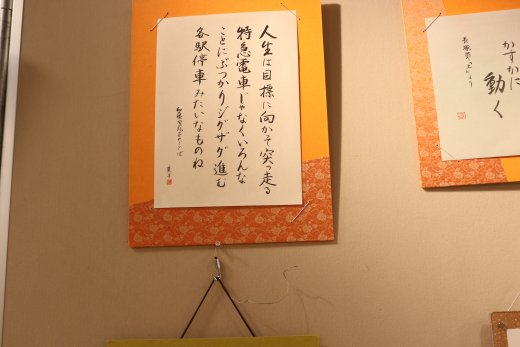 人生は目標に向かって突っ走る
特急電車じゃなくいろんな
ことにぶつかりジグザグ進む
各駅停車みたいなものね
かすかに
動く